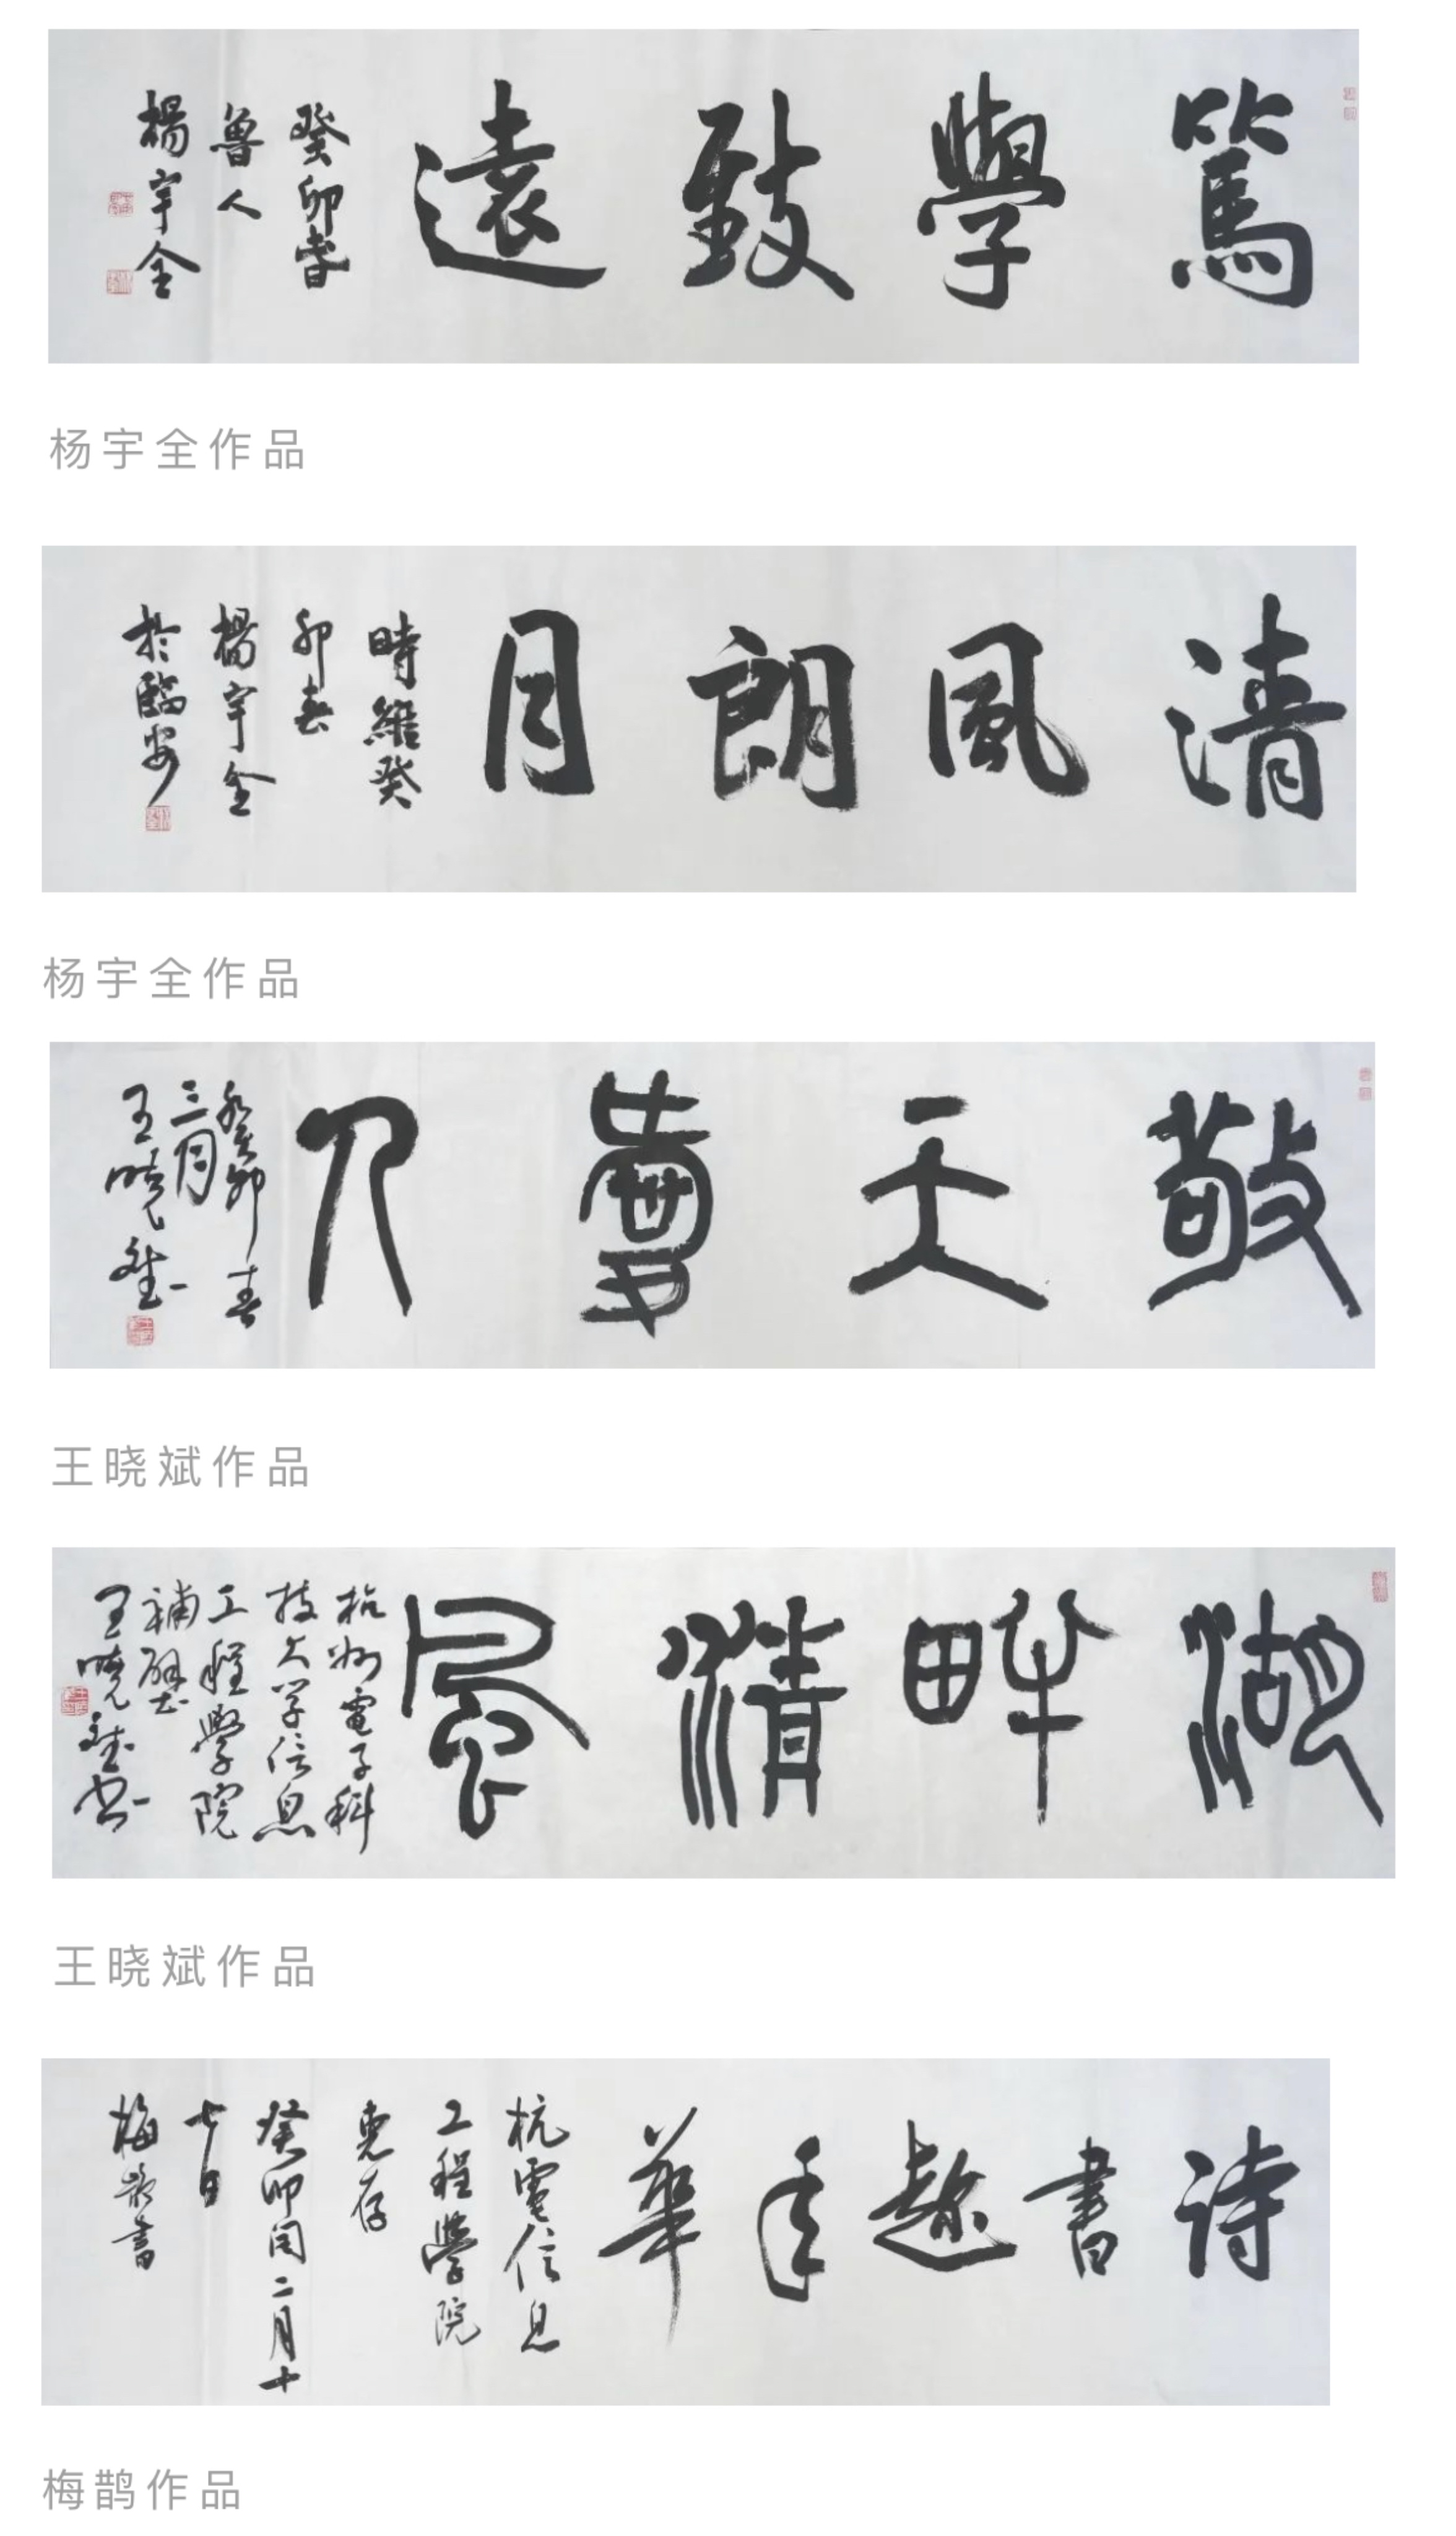 篤學致遠
癸卯春
魯人
楊宇全
杨宇全作品
清風朗月
時維癸
卯春
楊宇全
於臨安
杨宇全作品
敬天愛人
癸卯春
三月
王曉斌
王晓斌作品
湖畔清風
杭州電子科
技大学信息
工程學院
補壁
王曉斌书
王晓斌作品
诗書趁年華
杭電信息
工程學院
惠存
癸卯闰二月十
七日
梅鵲書
梅鹊作品